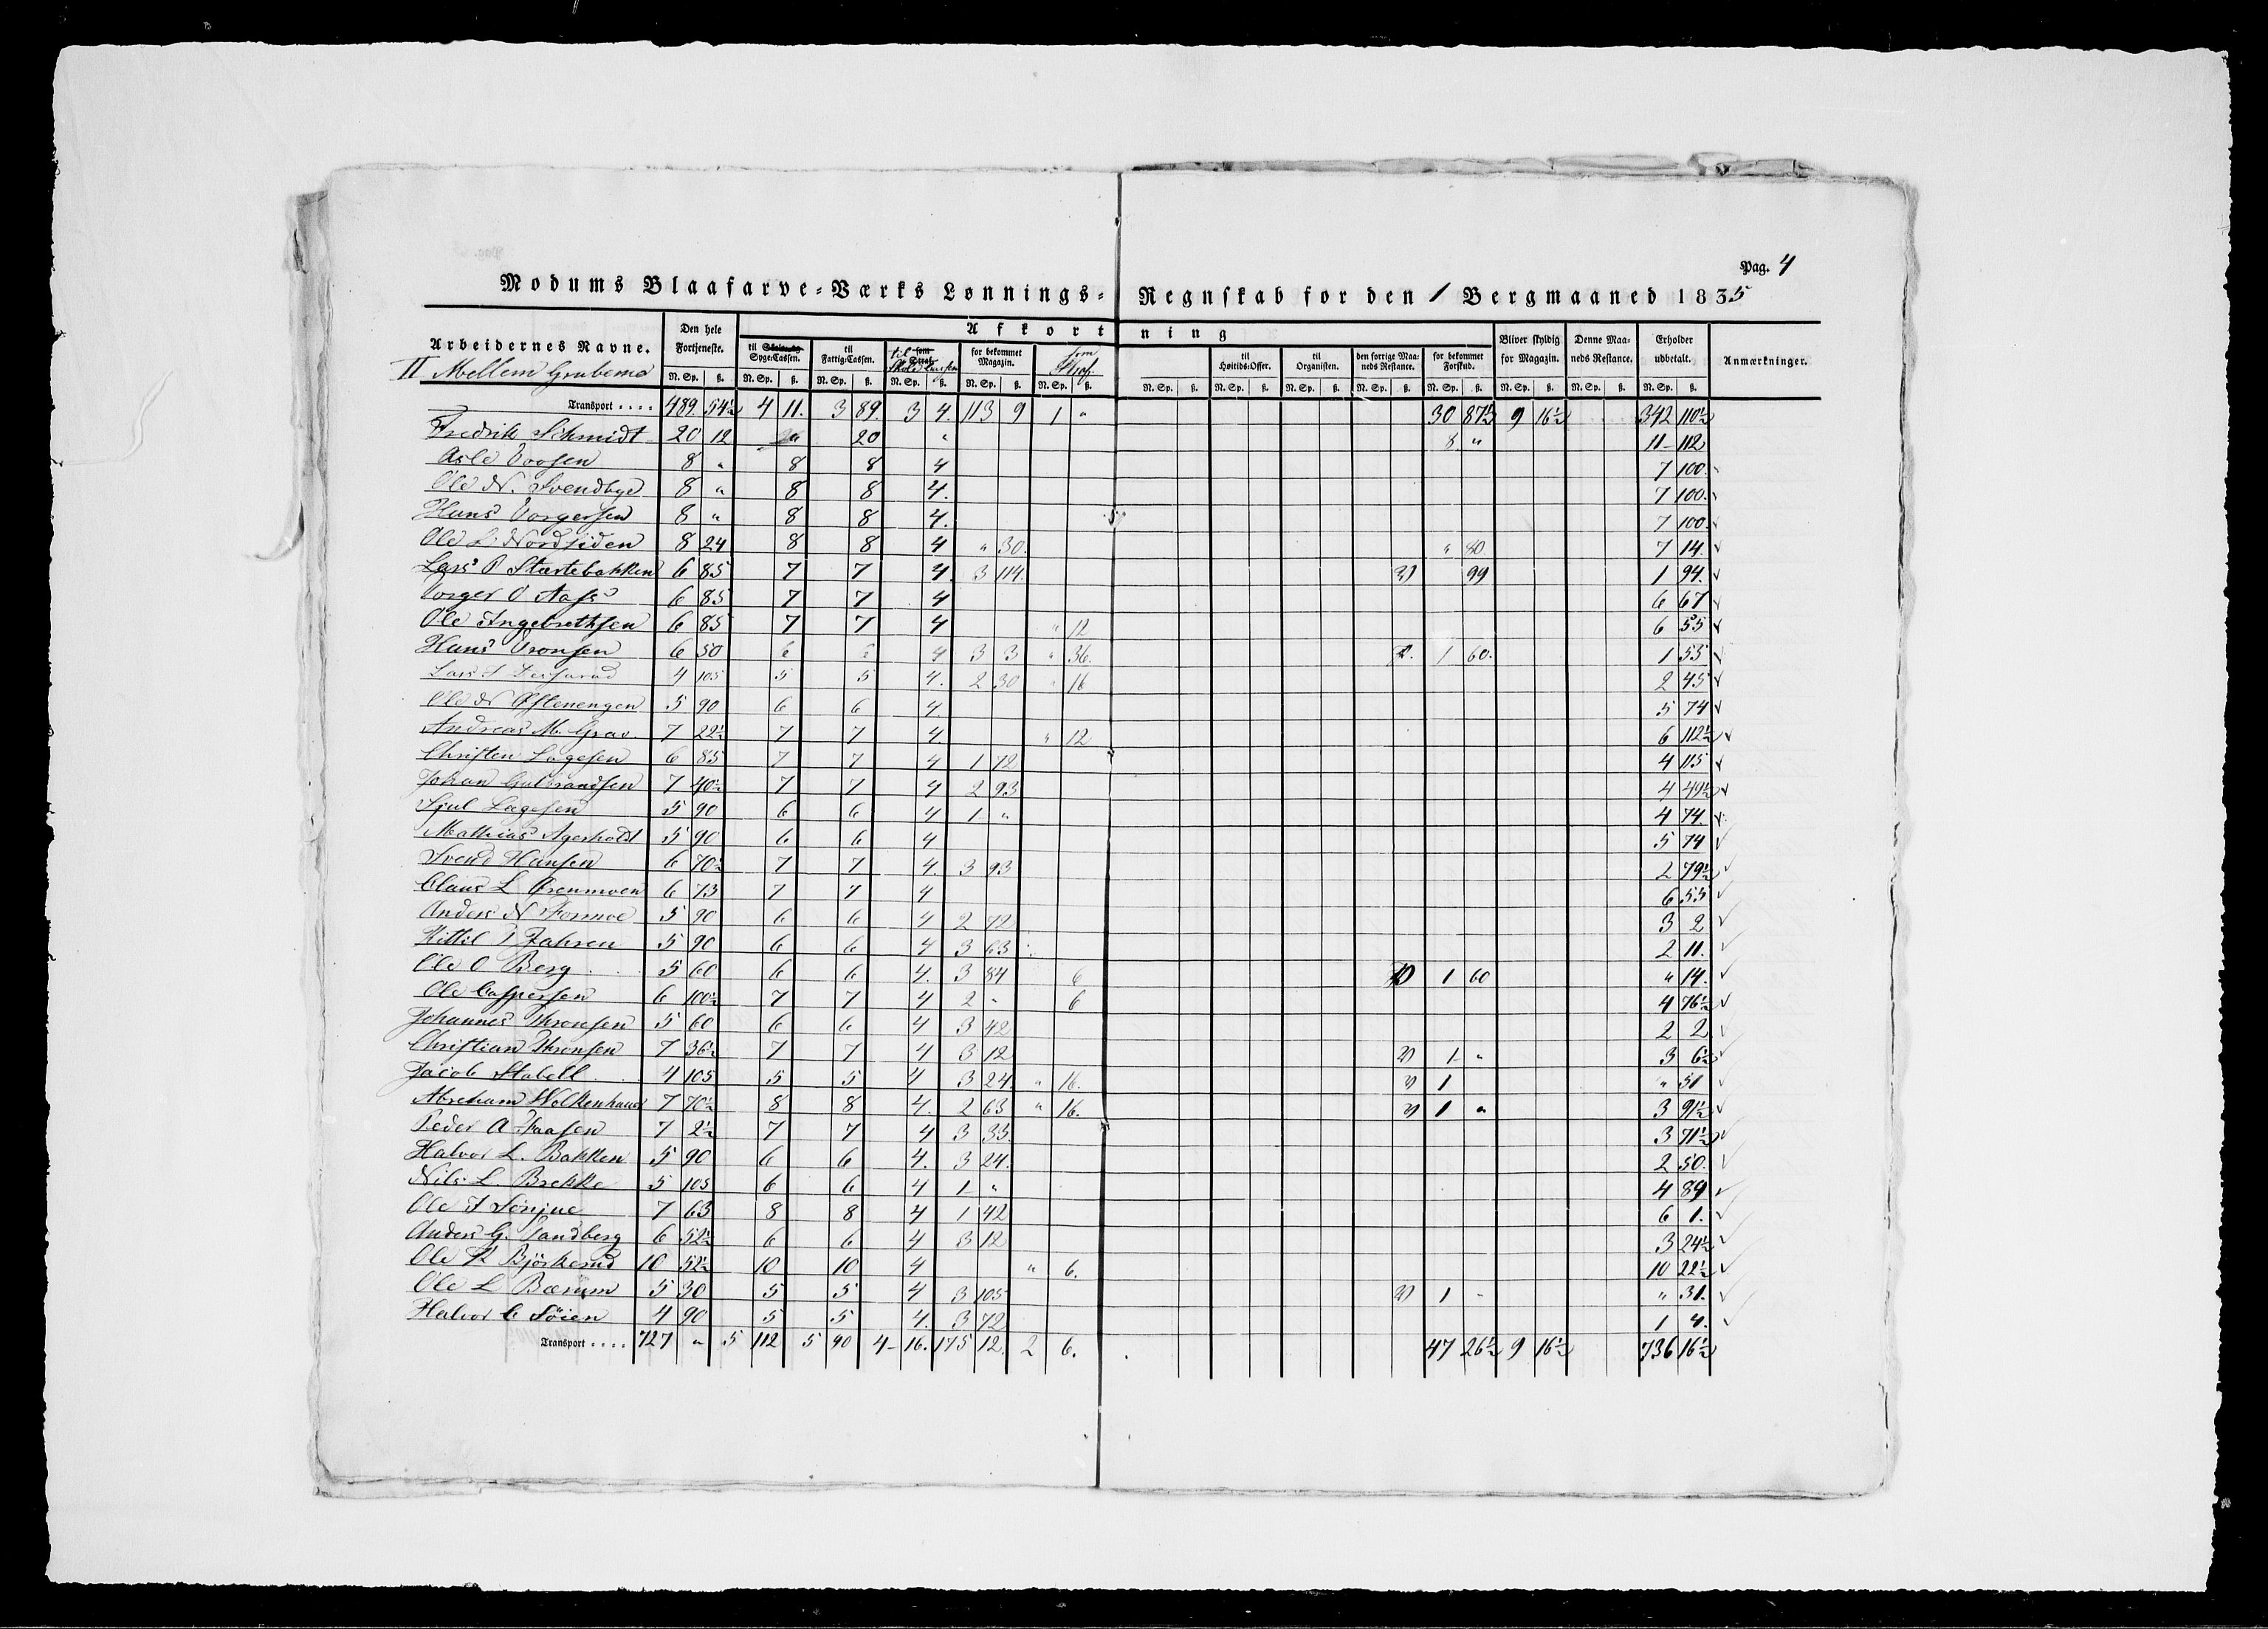 Pag. 4
Modums Blaafarve-Værks Lønnings- Regnskab for den 1 Bergmaaned 1835
Arbeidernes Navne. Den hele Fortjeneste. Afkortning Bliver skyldig for Magazin. Denne Maaneds Restance. Erholder udbetalt. Anmærkninger.
til Syge-Cassen. til Fattig-Cassen. til Skole Cassen for bekommet Magazin. som Straf. til Høitids-Offer. til Organisten. den forrige Maaneds Restance. for bekommet Forskud.
II Mellem Gruberne
N. Sp. ß. N. Sp. ß. N. Sp. ß. N. Sp. ß. N. Sp. ß. N. Sp. ß. N. Sp. ß. N. Sp. ß. N. Sp. ß. N. Sp. ß. N. Sp. ß. N. Sp. ß. N. Sp. ß. N. Sp. ß.
Transport .... 489 54½ 4 11. 3 89. 3 4. 113 9 1 " 30 87½ 9 16½ 342 110½
Fredrik Schmidt 20 12 20 " 8 " 11 - 112
Asle 8 " 8 8 4 7 100.
Ole N. Svendbye 8 " 8 8 4. 7 100.
Hans Torgersen 8 " 8 8 4. 7 100
Ole L Nordsiden 8 24 8 8 4 " 30. " 80. 7 14.
Lars P Stærtebakken 6 85 7 7 4. 3 114. 99 1 94.
Torger O Aass 6 85 7 7 4 6 67
Ole Ingebrethsen 6 85 7 7 4 " 12 6 55
Hans Tronsen 6 50 6 6 4 3 3 " 36. 1 60. 1 55
Lars 4 105 5 5 4. 2 30 " 16 2 45
Ole N Østenengen 5 90 6 6 4 5 74
Andreas M. Grav. 7 22½ 7 7 4. " 12 6 112½
Christen Lagesen 6 85 7 7 4 1 72 4 115
Johan Gulbrandsen 7 40½ 7 7 4 2 93 4 49½
Sjul Lagesen 5 90 6 6 4 1 " 4 74.
Mathias Agerholdt 5 90 6 6 4 5 74
Svend Hansen 6 70½ 7 7 4. 3 93 2 79½
Claus L Ørenmoen 6 73 7 7 4 6 55
Anders N Formoe 5 90 6 6 4 2 72 3 2
Kittil T Fahren 5 90 6 6 4 3 63 2 11.
Ole O Berg 5 60 6 6 4. 3 84 6 1 60 " 14.
Ole Caspersen 6 100½ 7 7 4 2 " 6 4 76½
Johannes Thronsen 5 60 6 6 4 3 42 2 2
Christian Thronsen 7 36½ 7 7 4 3 12 1 " 3 6½
Jacob Stabell 4 105 5 5 4 3 24. " 16. 1 " 51
Abraham Wolkenhauer 7 70½ 8 8 4. 2 63 " 16. 1 " 3 91½
Peder A 7 2½ 7 7 4 3 33. 3 71½
Halvor L. Bakken 5 90 6 6 4. 3 24. 2 50.
Nils L. Brekke 5 105 6 6 4 1 " 4 89
Ole 7 63 8 8 4 1 42 6 1.
Anders G. Sandberg 6 52½ 6 6 4 3 12 3 24½
Ole K Björkerud 10 52½ 10 10 4 " 6. 10 22½
Ole L Bærum 5 30 5 5 4 3 105 1 - " 31.
Halvor C Söien 4 90 5 5 4. 3 72 1 4.
Transport .... 727 " 5 112 5 90 4 - 16. 175 12. 2 6. 47 26½ 9 16½ 736 16½